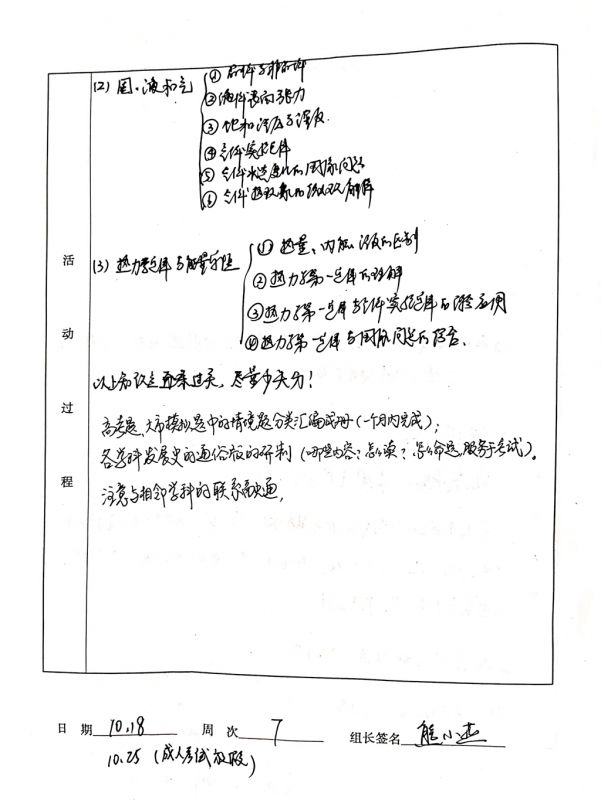 (2) 固、液和气
① 晶体与非晶体
② 液体表面张力
③ 饱和汽压与湿度
④ 气体实验定律
⑤ 气体状态变化的图像问题
⑥ 气体热现象的微观解释
(3) 热力学定律与能量守恒
① 热量、内能、温度的区别
② 热力学第一定律的理解
③ 热力学第一定律与气体实验定律的综合应用
④ 热力学第一定律与图像问题的综合、
以上知识点逐条过关,尽量少失分!
高考题、大市模拟题中的情境题分类汇编成册(一个月内完成);
各学科发展史的通俗版的研制(哪些内容?怎么读?怎么命题,服务于考试)。
注意与相邻学科的联系融通,
活动过程
日 期 10.18 周 次 7 组长签名 熊小杰
10.25 (成人考试放假)